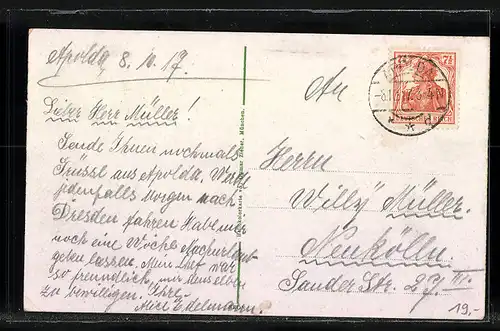 Apolda, 8.10.17.
Lieber Herr Müller!
Sende Ihnen nochmals
Grüsse aus Apolda. Werde
jedenfalls morgen nach
Dresden fahren. Habe mir
noch eine Woche Nachurlaub
geben lassen. Mein Chef war
so freundlich, mir denselben
zu bewilligen. Ihre
Edelmann.
An
Herrn
Willy Müller.
Neukölln.
Sander Str. 27. III.
7½
19,-